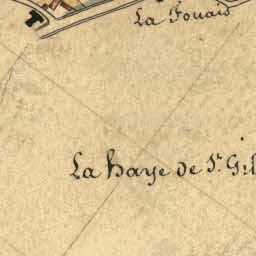 La Fouais
La haye de St. Gil